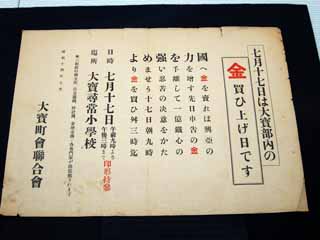 七月十七日は大寶部內の
金 買ひ上げ日です
國へ金を賣れば興亞の
力を增す先日申告の金
を手離して一億鐵心の
强い忍苦の決意をかた
めませう十七日朝九時
より金を買ひ舛三時迄
日時 七月十七日 午前九時より 午後三時まで 印形持參
場所 大寶尋常小學校
大寶町會聯合會